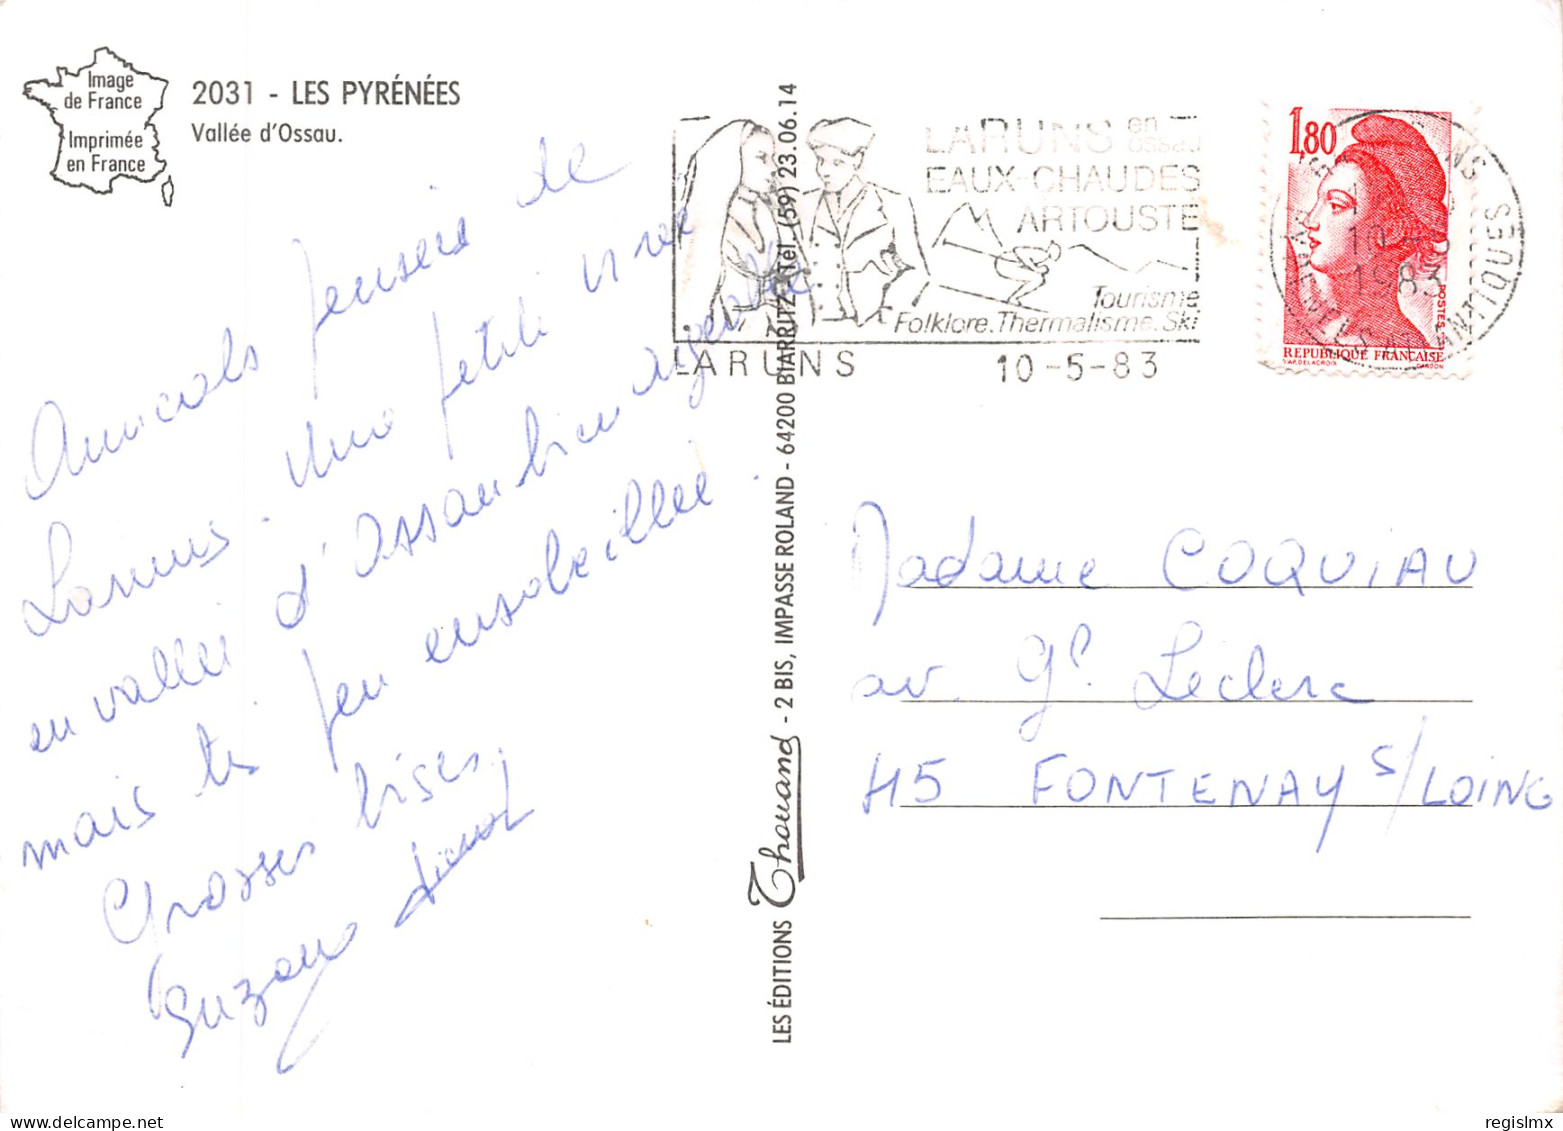 Image
de France
Imprimée
en France
2031 - LES PYRÉNÉES
Vallée d'Ossau.
Amicals pensers de
Laruns. Une petite virée
en vallée d'Ossau bien agréable
mais très peu ensoleillée.
Grosses bises.
Suzane
LES ÉDITIONS Thouand - 2 BIS, IMPASSE ROLAND - 64200 BIARRITZ - Tél. (59) 23.06.14
LARUNS en ossau
EAUX-CHAUDES
ARTOUSTE
Tourisme
Folklore.Thermalisme.Ski
LARUNS 10-5-83
1,80
POSTES
REPUBLIQUE FRANÇAISE
LARUNS
10
1983
PYRENEES ATLANTIQUES
Madame COQUIAU
av. Gl Leclerc
45 FONTENAY S/LOING
regislmx